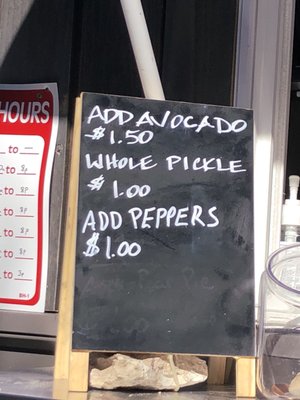 HOURS
to
to 8P
to 8P
to 8P
to 8P
to 8P
to 3P
BH-1
ADD AVOCADO
$1.50
WHOLE PICKLE
$1.00
ADD PEPPERS
$1.00